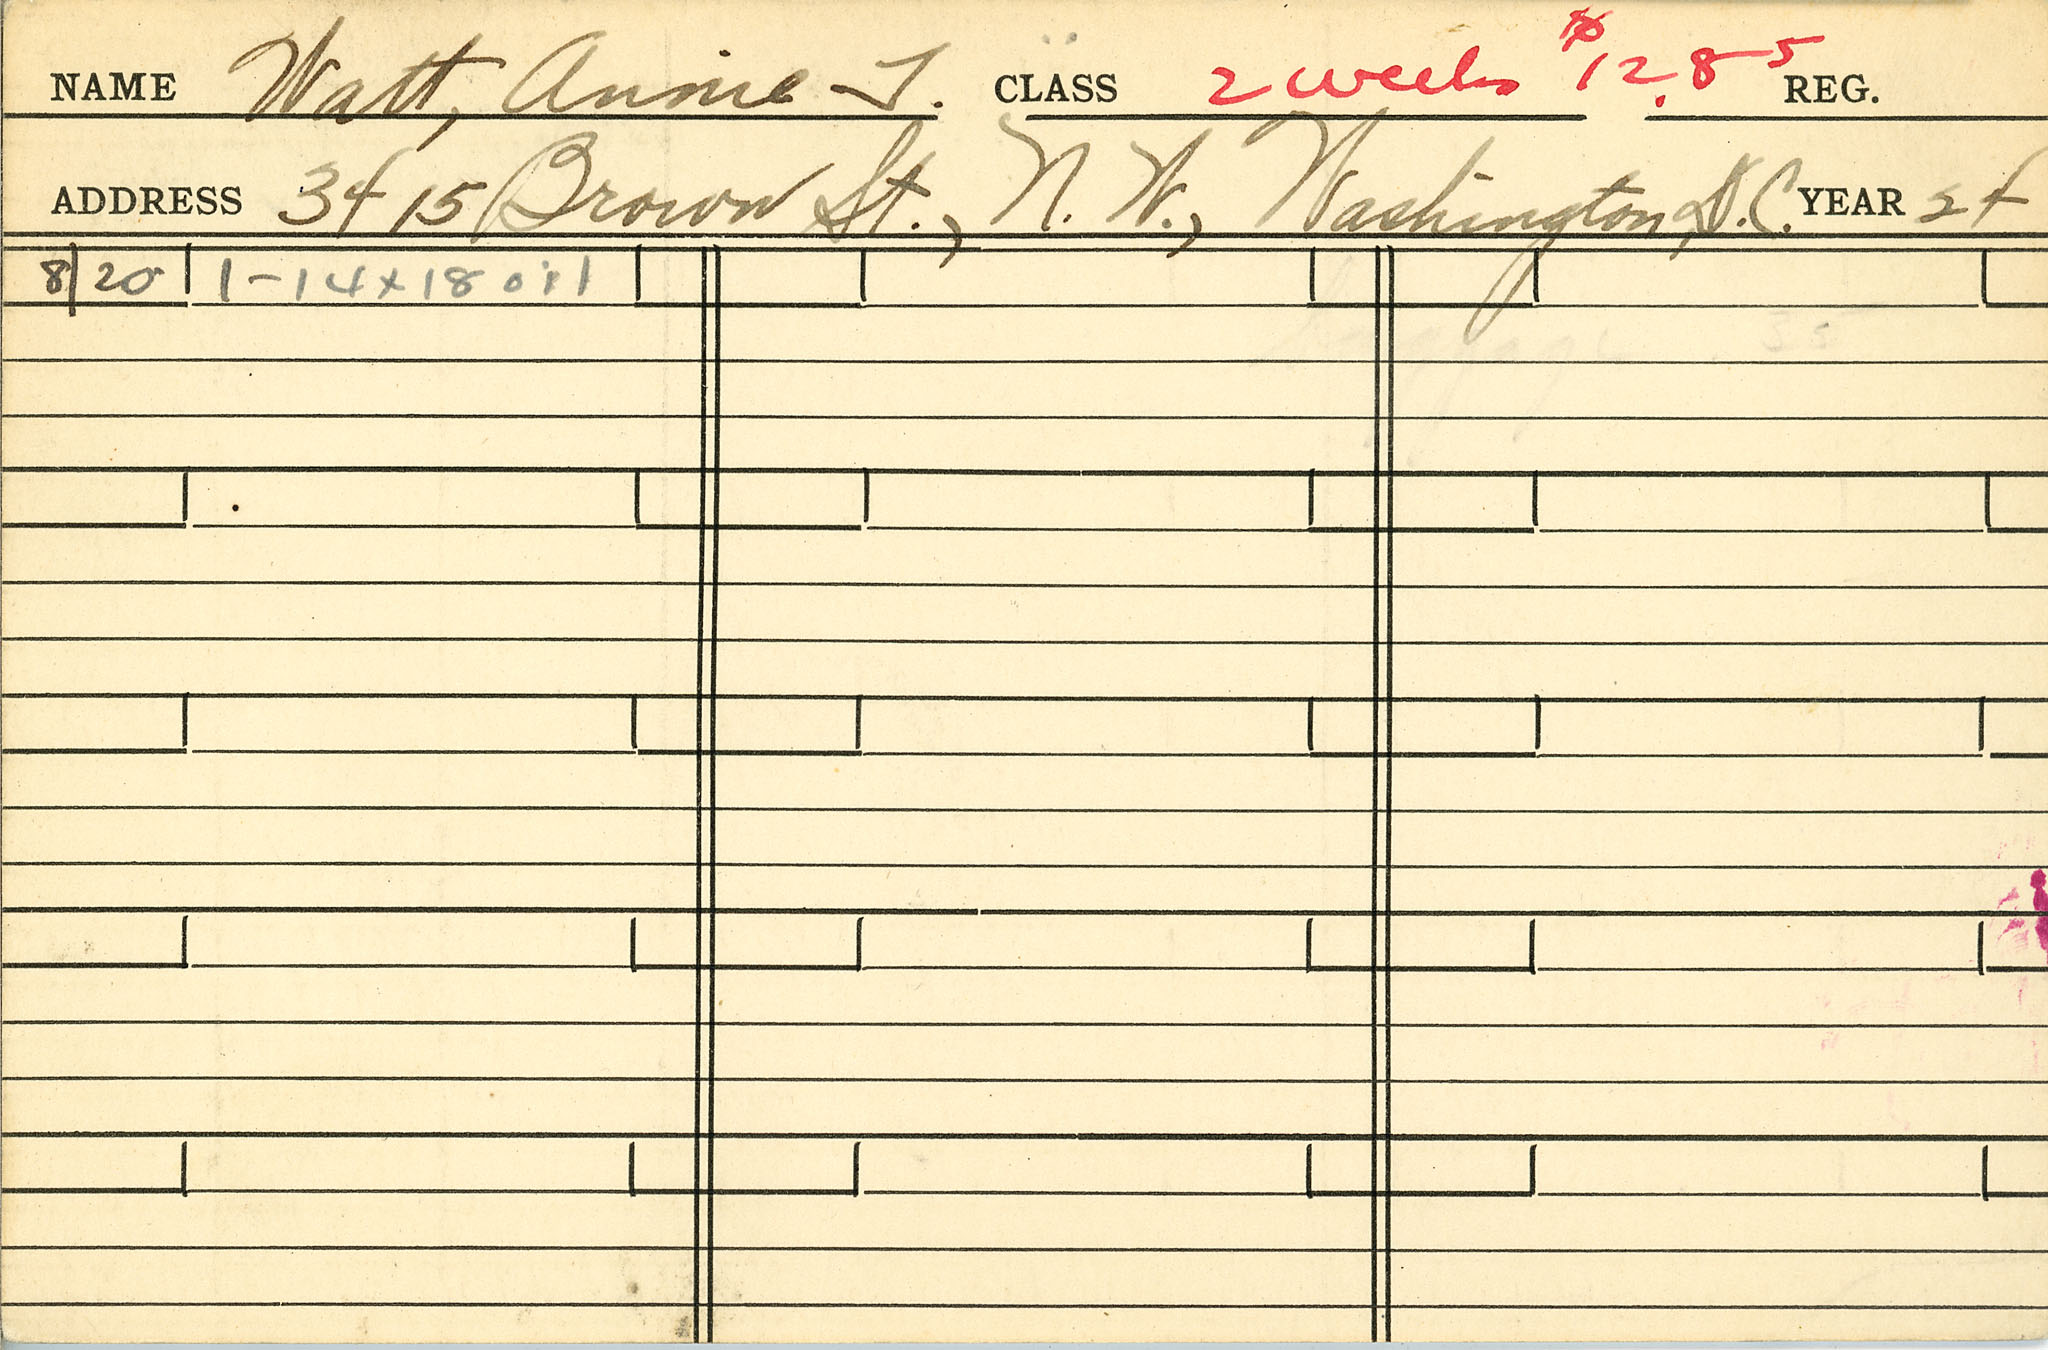 NAME Watt, Annie T. CLASS 2 weeks $12.85 REG.
ADDRESS 3415 Brown St., N. W., Washington, D.C. YEAR 24
8/20 1-14x18 oil
35